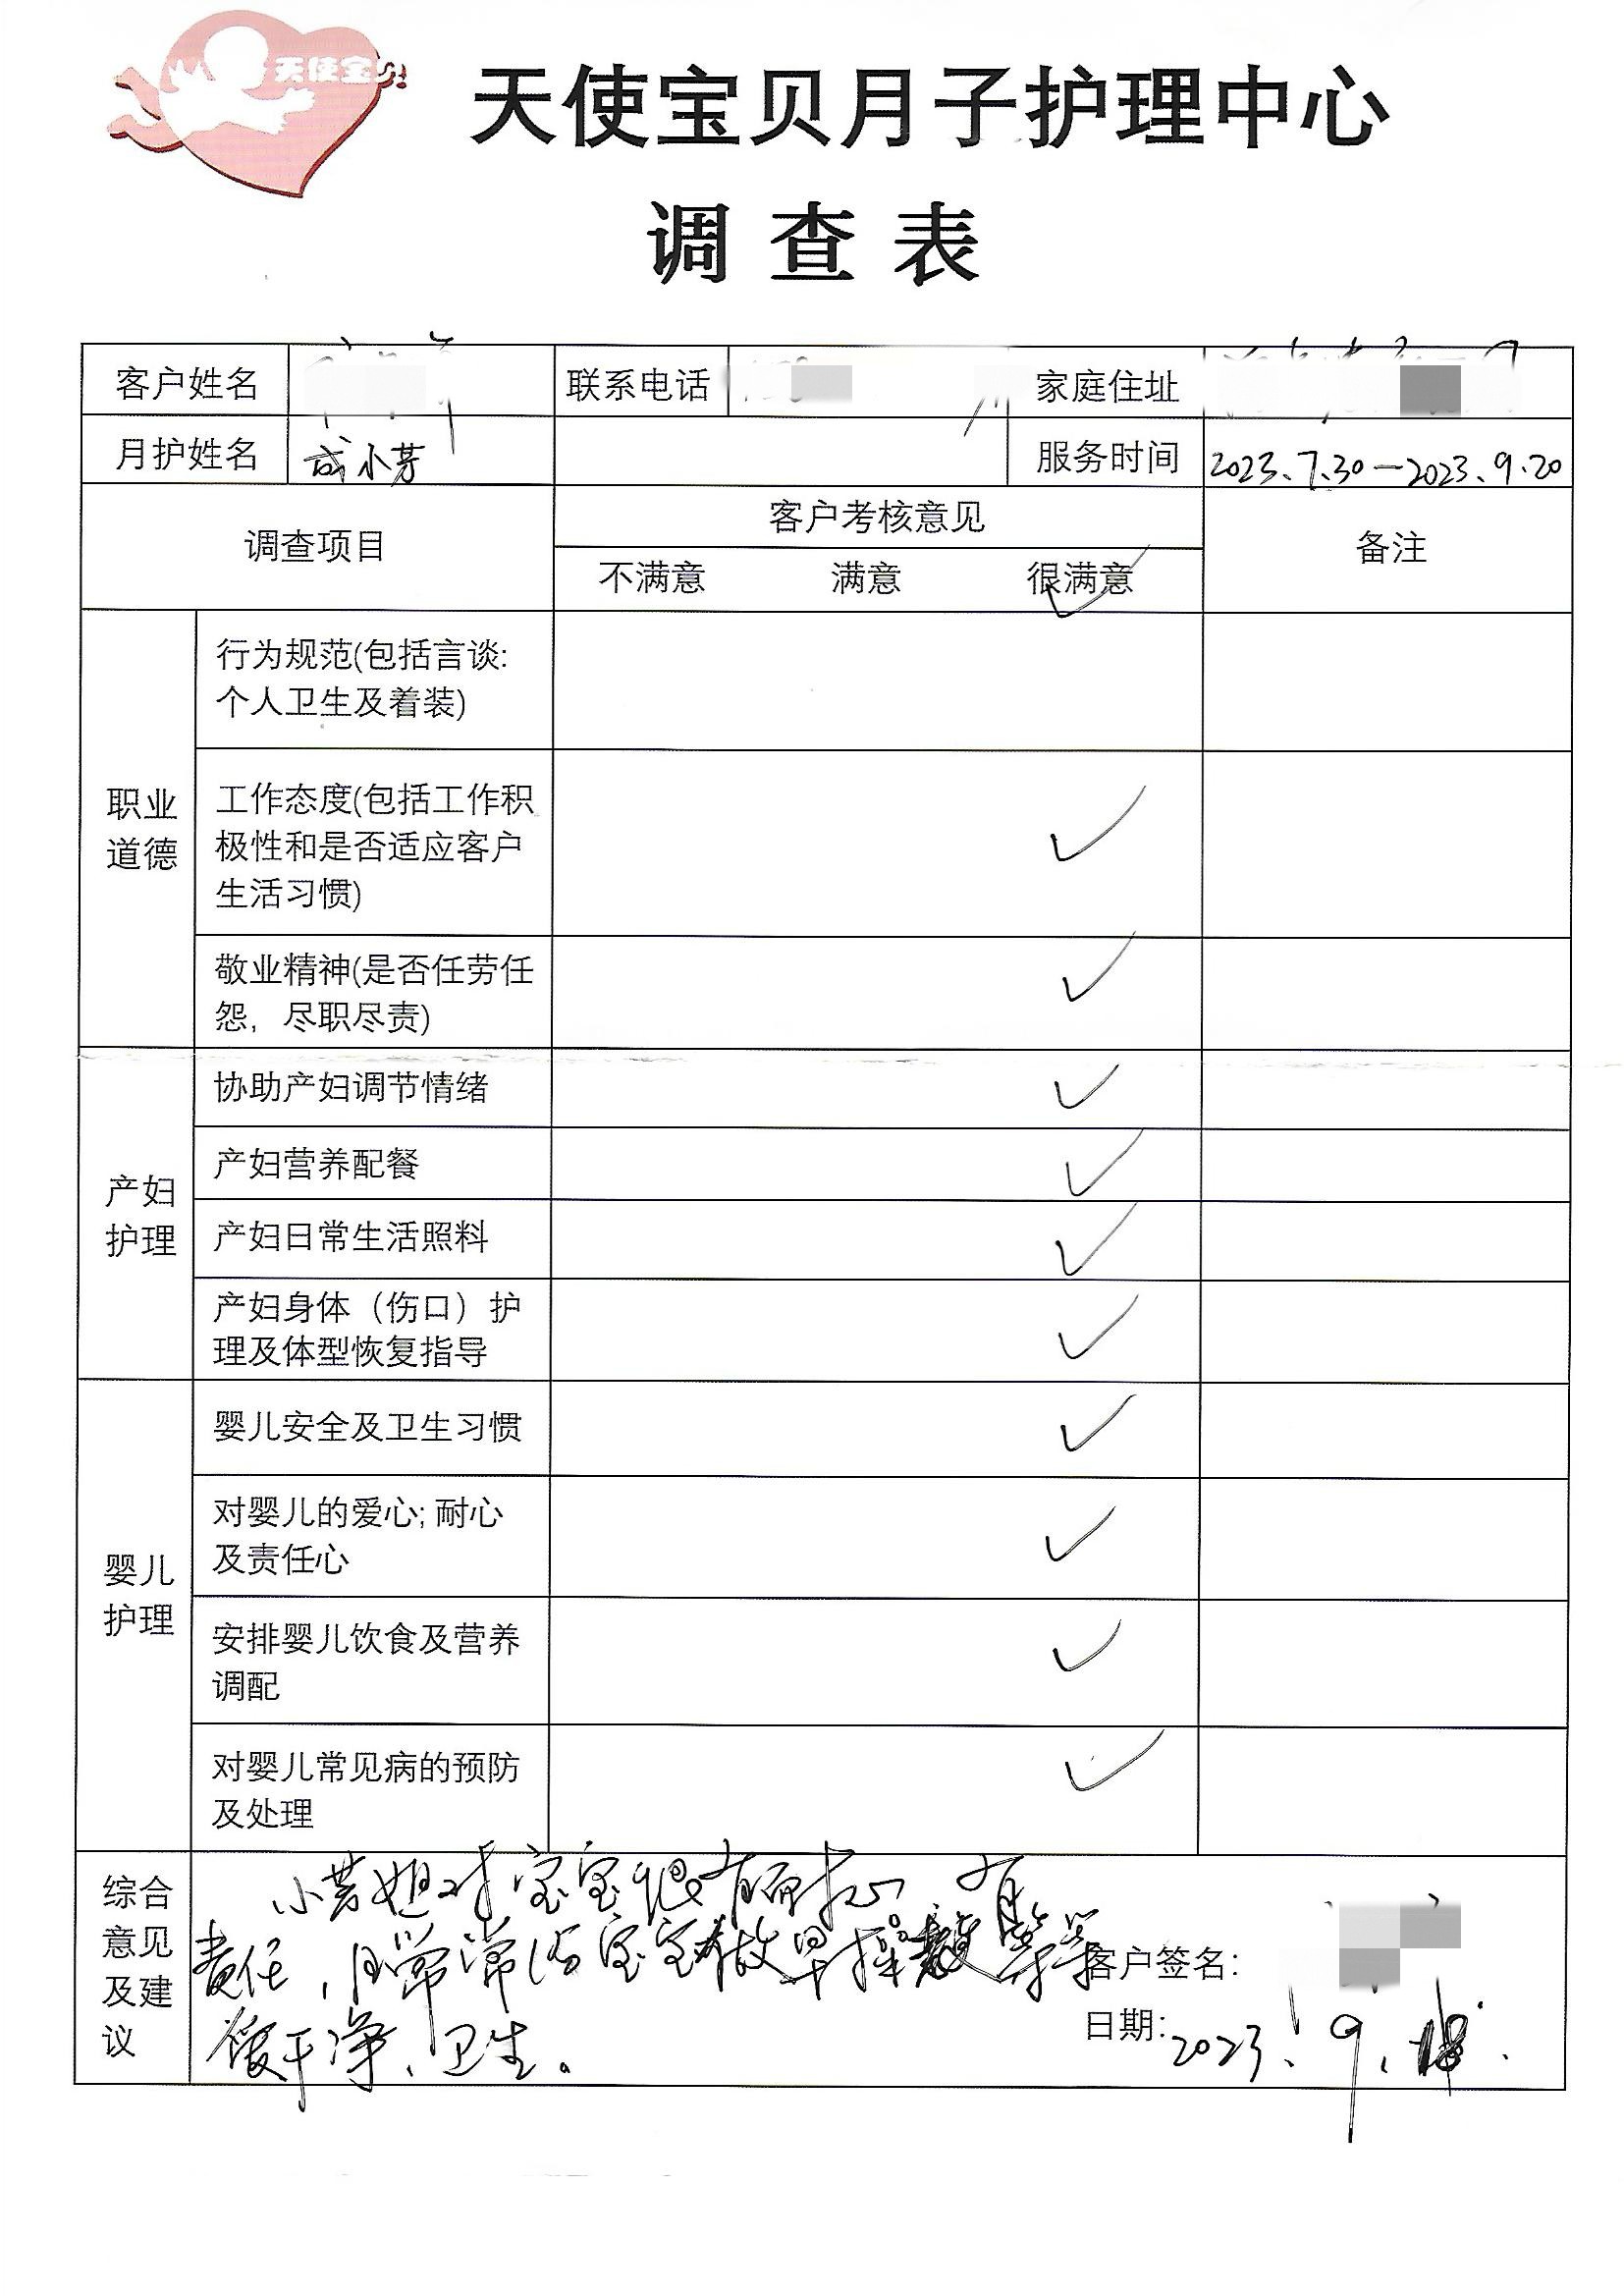 天使宝
天使宝贝月子护理中心
调查表
客户姓名 联系电话 家庭住址
月护姓名 成小芳 服务时间 2023.7.30—2023.9.20
调查项目 客户考核意见 备注
不满意 满意 很满意
职业
道德
行为规范(包括言谈:
个人卫生及着装)
工作态度(包括工作积
极性和是否适应客户
生活习惯)
敬业精神(是否任劳任
怨,尽职尽责)
产妇
护理
协助产妇调节情绪
产妇营养配餐
产妇日常生活照料
产妇身体(伤口)护
理及体型恢复指导
婴儿
护理
婴儿安全及卫生习惯
对婴儿的爱心;耐心
及责任心
安排婴儿饮食及营养
调配
对婴儿常见病的预防
及处理
综合
意见
及建
议
小芳姐对宝宝很有耐心 有
责任,日常常给宝宝做早操 等等
很干净、卫生。
客户签名:
日期:2023.9.18.